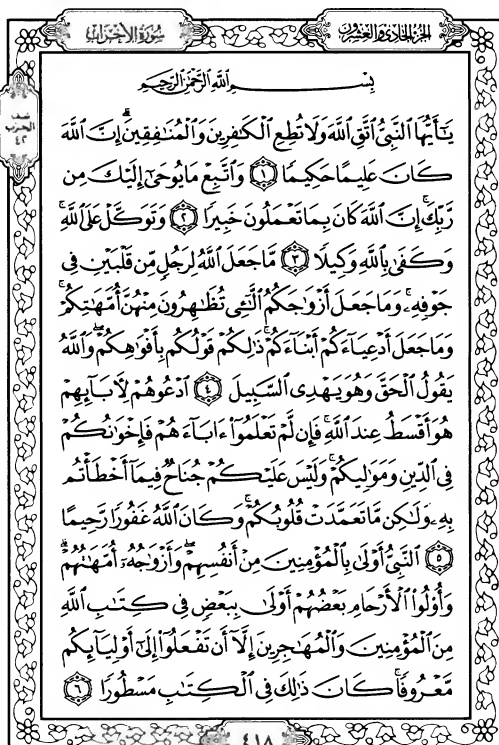 سُورَةُ الأَحْزَابِ
الجُزْءُ الحَادِى وَالعِشْرُونَ
نصف
الحزب
٤٢
بِسْمِ ٱللَّهِ ٱلرَّحْمَٰنِ ٱلرَّحِيمِ
يَٰٓأَيُّهَا ٱلنَّبِىُّ ٱتَّقِ ٱللَّهَ وَلَا تُطِعِ ٱلْكَٰفِرِينَ وَٱلْمُنَٰفِقِينَۗ إِنَّ ٱللَّهَ
كَانَ عَلِيمًا حَكِيمًا ١ وَٱتَّبِعْ مَا يُوحَىٰٓ إِلَيْكَ مِن
رَّبِّكَۚ إِنَّ ٱللَّهَ كَانَ بِمَا تَعْمَلُونَ خَبِيرًا ٢ وَتَوَكَّلْ عَلَى ٱللَّهِۚ
وَكَفَىٰ بِٱللَّهِ وَكِيلًا ٣ مَّا جَعَلَ ٱللَّهُ لِرَجُلٍ مِّن قَلْبَيْنِ فِى
جَوْفِهِۦۚ وَمَا جَعَلَ أَزْوَٰجَكُمُ ٱلَّٰٓـِٔى تُظَٰهِرُونَ مِنْهُنَّ أُمَّهَٰتِكُمْۚ
وَمَا جَعَلَ أَدْعِيَآءَكُمْ أَبْنَآءَكُمْۚ ذَٰلِكُمْ قَوْلُكُم بِأَفْوَٰهِكُمْۖ وَٱللَّهُ
يَقُولُ ٱلْحَقَّ وَهُوَ يَهْدِى ٱلسَّبِيلَ ٤ ٱدْعُوهُمْ لِـَٔابَآئِهِمْ
هُوَ أَقْسَطُ عِندَ ٱللَّهِۚ فَإِن لَّمْ تَعْلَمُوٓا۟ ءَابَآءَهُمْ فَإِخْوَٰنُكُمْ
فِى ٱلدِّينِ وَمَوَٰلِيكُمْۚ وَلَيْسَ عَلَيْكُمْ جُنَاحٌ فِيمَآ أَخْطَأْتُم
بِهِۦ وَلَٰكِن مَّا تَعَمَّدَتْ قُلُوبُكُمْۚ وَكَانَ ٱللَّهُ غَفُورًا رَّحِيمًا
٥ ٱلنَّبِىُّ أَوْلَىٰ بِٱلْمُؤْمِنِينَ مِنْ أَنفُسِهِمْۖ وَأَزْوَٰجُهُۥٓ أُمَّهَٰتُهُمْۗ
وَأُو۟لُوا۟ ٱلْأَرْحَامِ بَعْضُهُمْ أَوْلَىٰ بِبَعْضٍ فِى كِتَٰبِ ٱللَّهِ
مِنَ ٱلْمُؤْمِنِينَ وَٱلْمُهَٰجِرِينَ إِلَّآ أَن تَفْعَلُوٓا۟ إِلَىٰٓ أَوْلِيَآئِكُم
مَّعْرُوفًاۚ كَانَ ذَٰلِكَ فِى ٱلْكِتَٰبِ مَسْطُورًا ٦
٤١٨